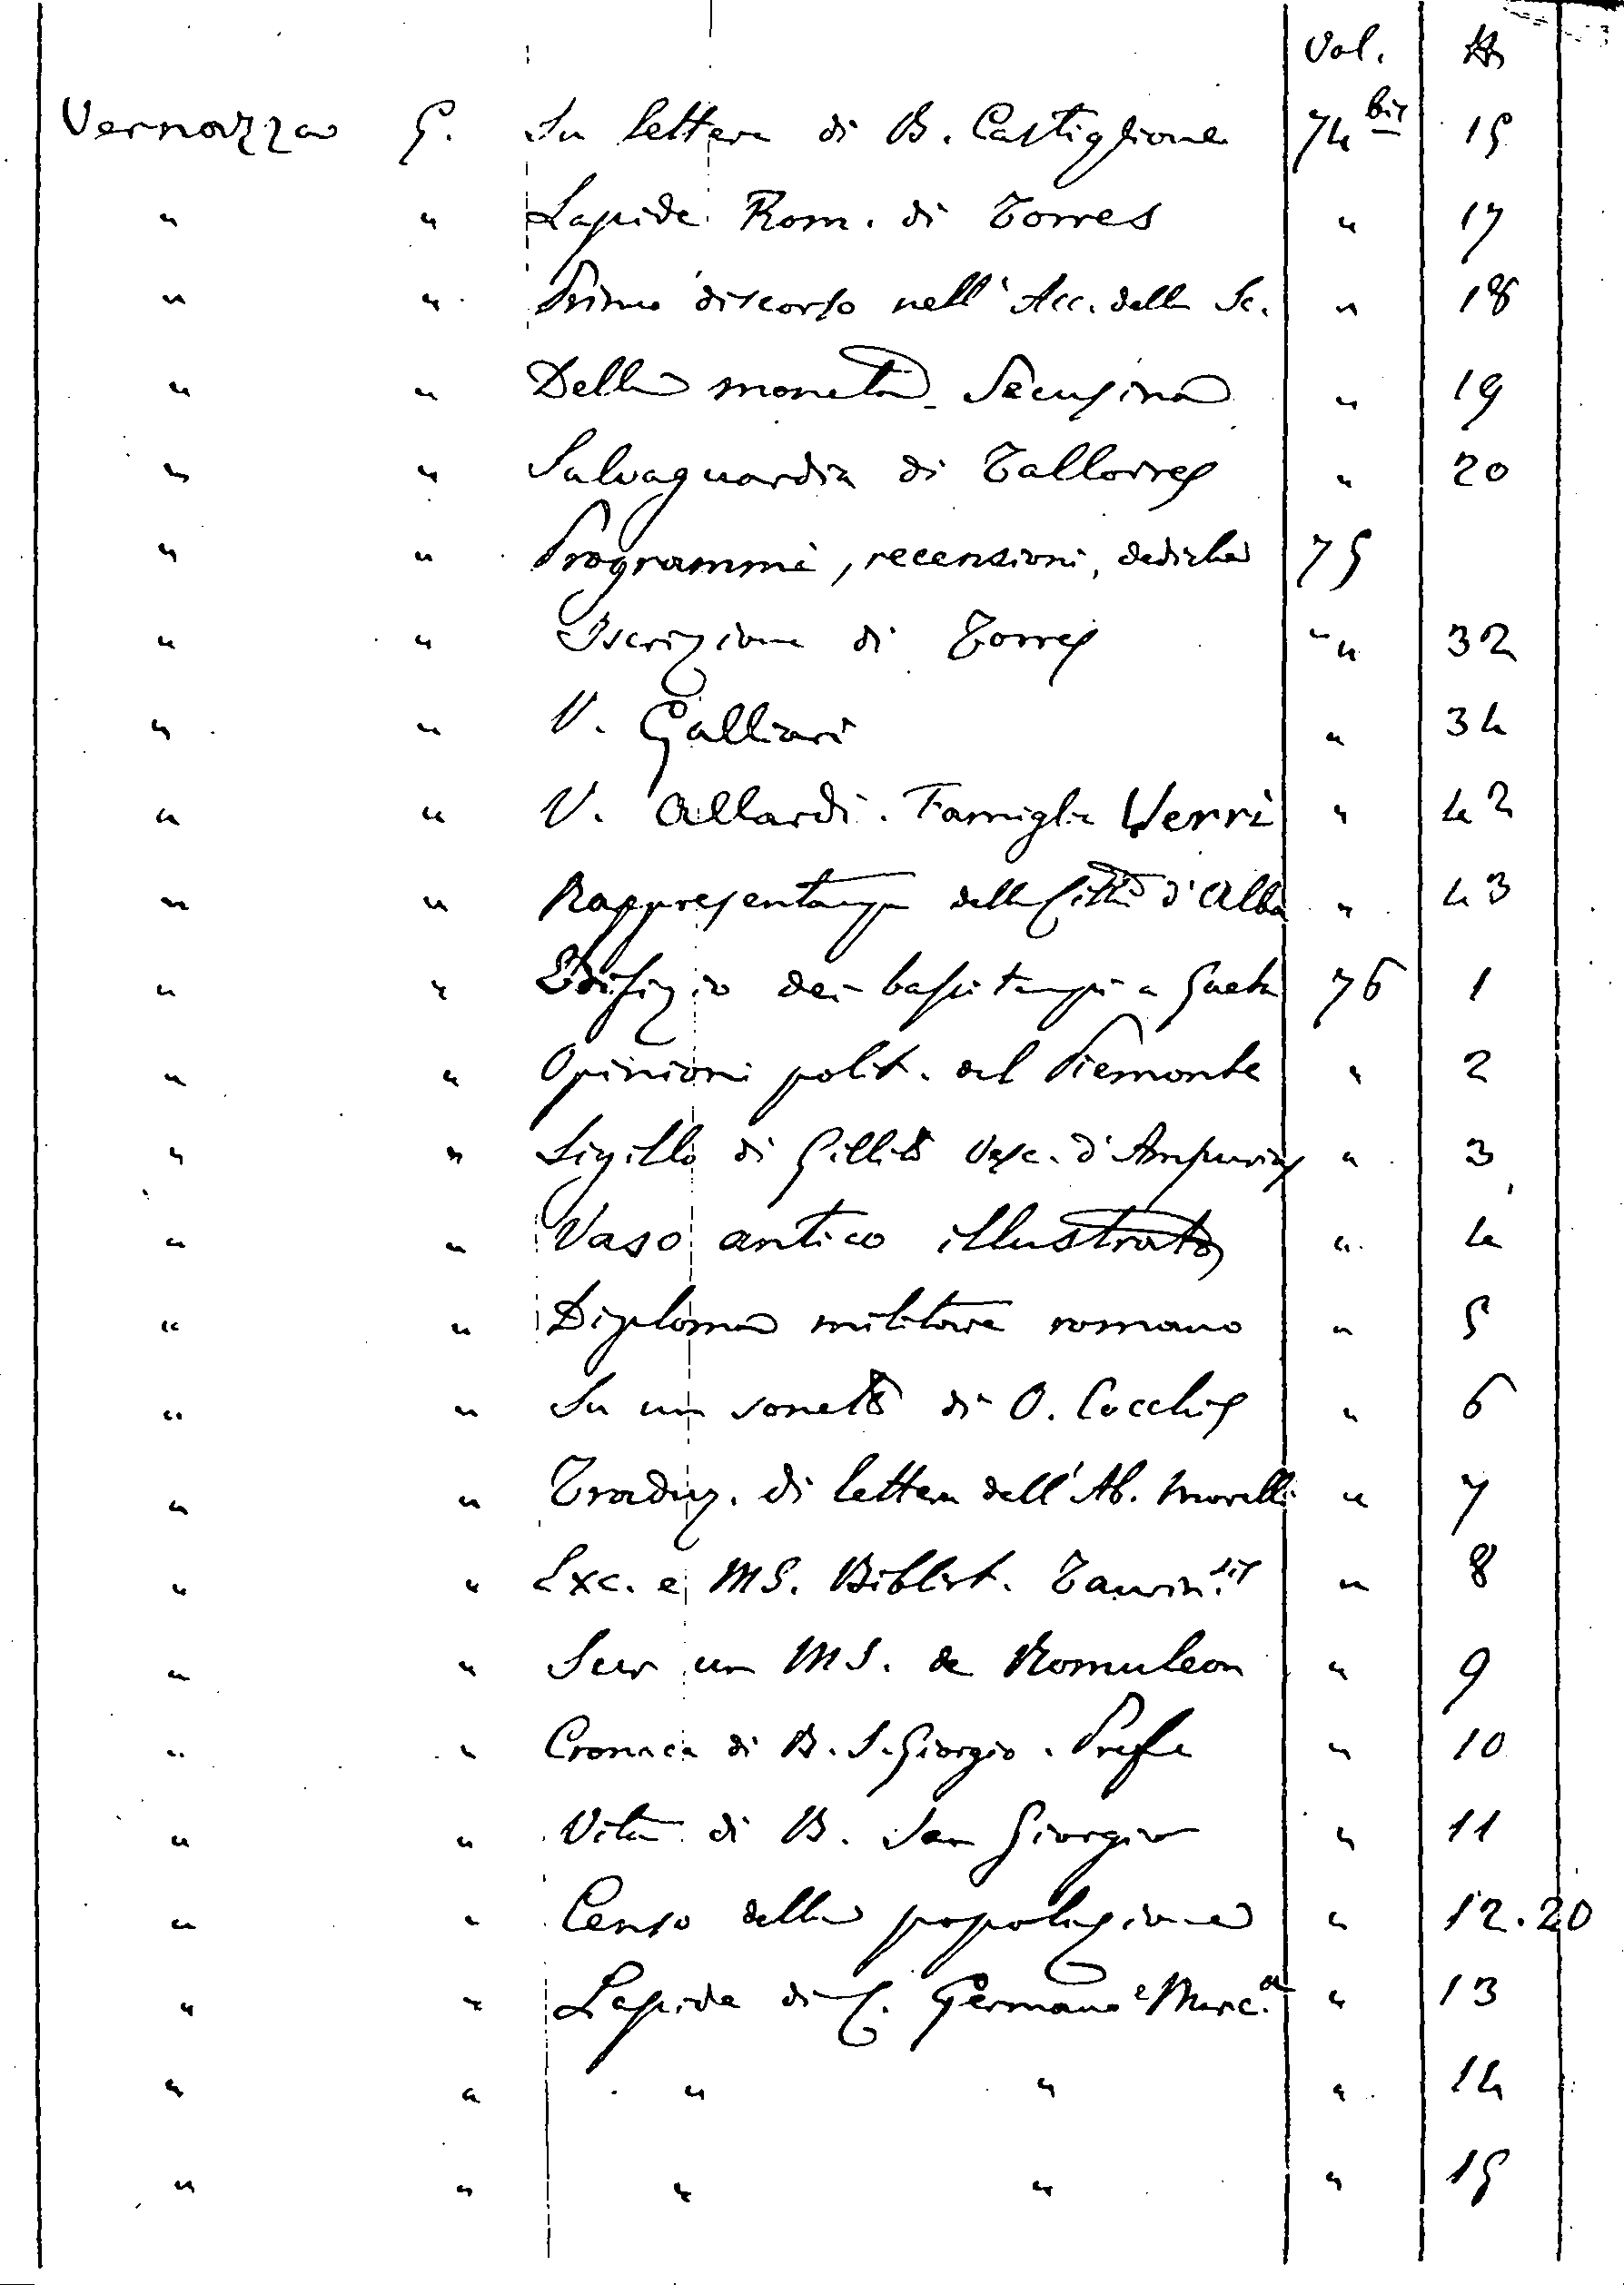 Vol. №
Vernazza G. Su lettera di B. Castiglione 74 bis 15
" " Lapide Rom. di Torres " 17
" " Primo discorso nell' Acc. delle Sc. " 18
" " Della moneta Secusina " 19
" " Salvaguardia di Talloires " 20
" " Programmi, recensioni, dediche 75
" " Iscrizione di Torres " " 32
" " V. Galliari " 34
" " V. Allardi. Famiglia Verri " 42
" " Rappresentanza della Città d'Alba " 43
" " Edifizio dei bassi tempi a Gaeta 76 1
" " Opinioni polit. del Piemonte " 2
" " Sigillo di Gillito Vesc. d'Ampurias " 3
" " Vaso antico illustrato " 4
" " Diploma militare romano " 5
" " Su un sonetto di O. Cocchis " 6
" " Traduz. di lettera dell'Ab. Morelli " 7
" " Exc. e MS. Bibliot. Taurin.sis " 8
" " Sur un MS. de Romuleon " 9
" " Cronaca di B. S. Giorgio. Prefe " 10
" " Vita di B. San Giorgio " 11
" " Censo della popolazione " 12.20
" " Lapide di C. Germano e Marc.a " 13
" " " " " 14
" " " " " 15